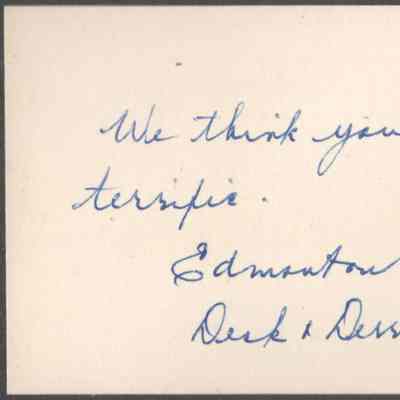 We think you
terrific.
Edmonton
Desk & Derr